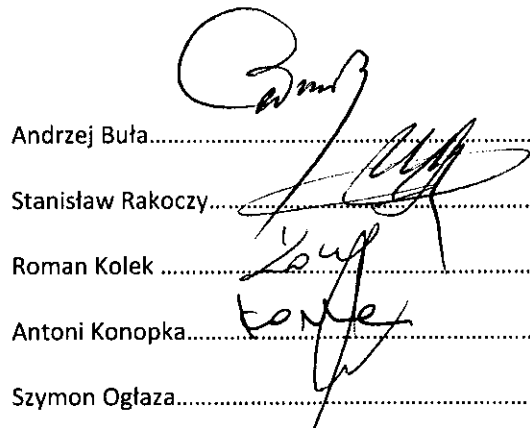 Andrzej Buła..............................
Stanisław Rakoczy..............................
Roman Kolek ..............................
Antoni Konopka..............................
Szymon Ogłaza..............................